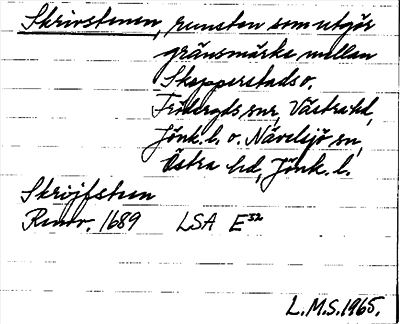 Skrivstenen, runsten som utgör
gränsmärke mellan
Skepperstads o.
Fröderyds snr, Västra hd,
Jönk. l. o. Nävelsjö sn,
Östra hd, Jönk. l.
Skrijfsteen
Rannr. 1689 LSA E 52
L.M.S. 1965.